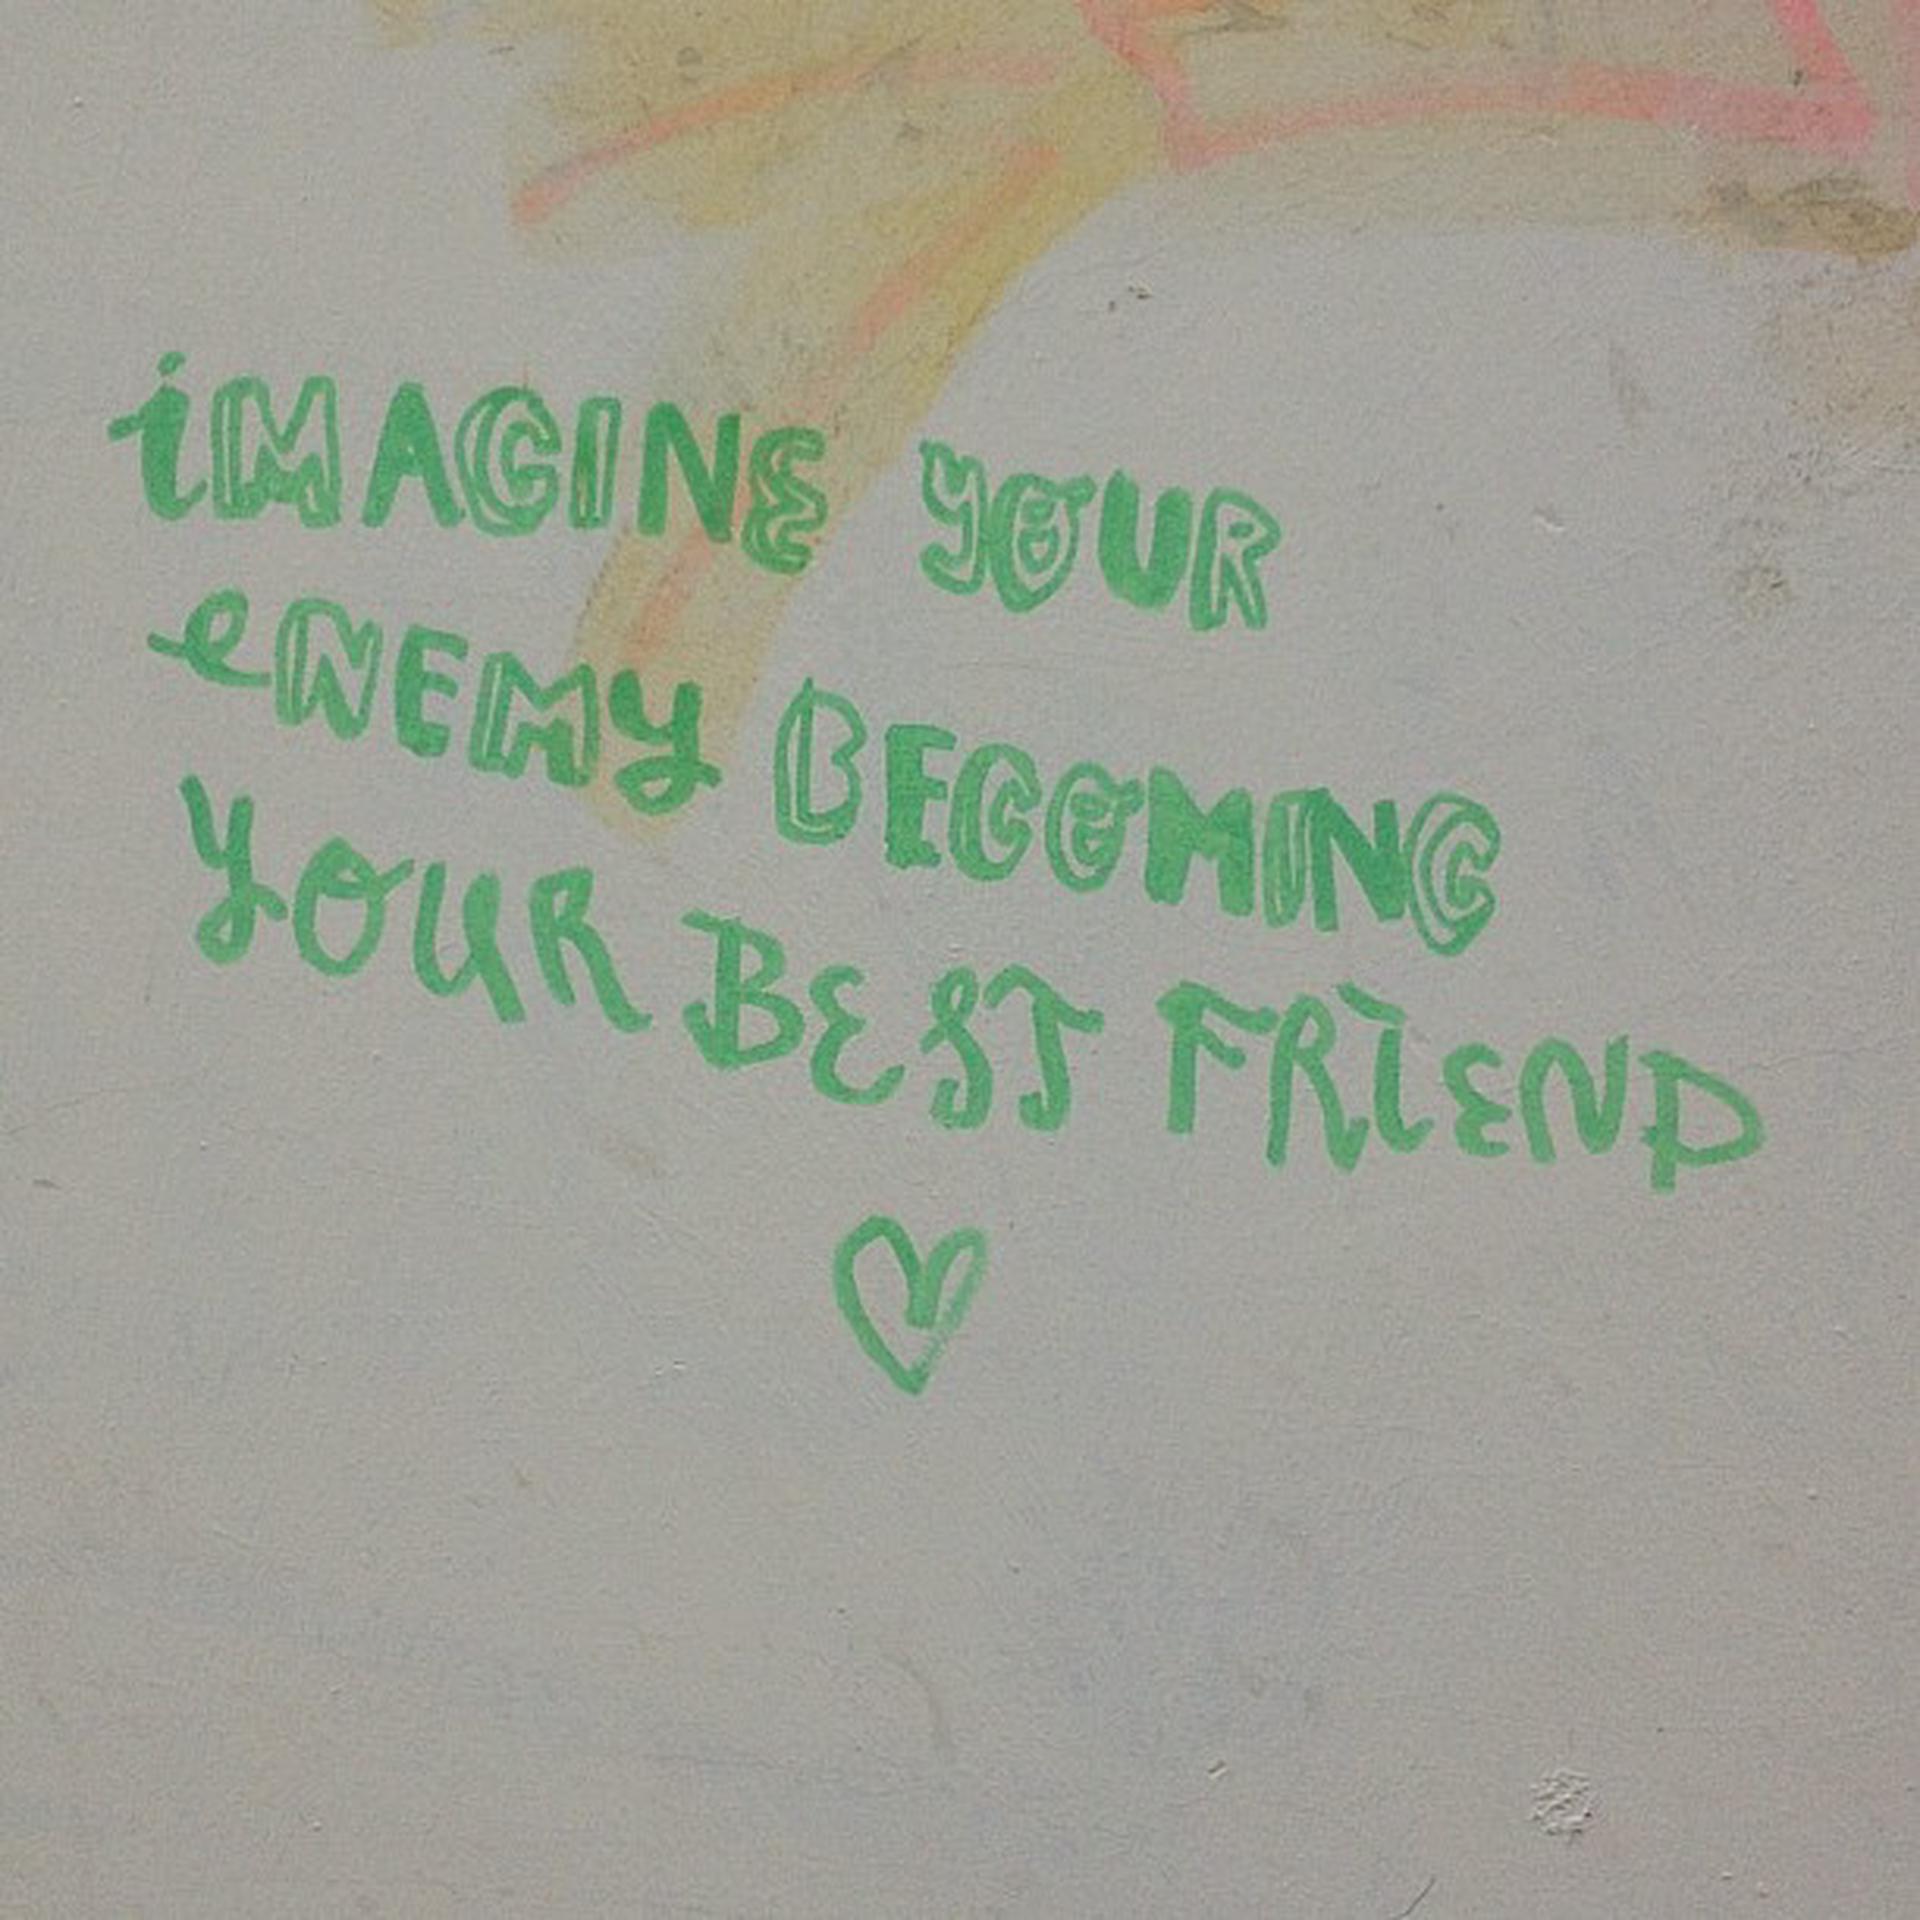 iMAGINE YOUR
eNEMY BECOMING
YOUR BEST FRIEND